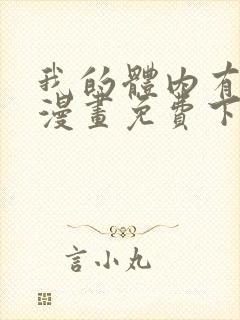 我的體內有
漫畫免費下
言小丸